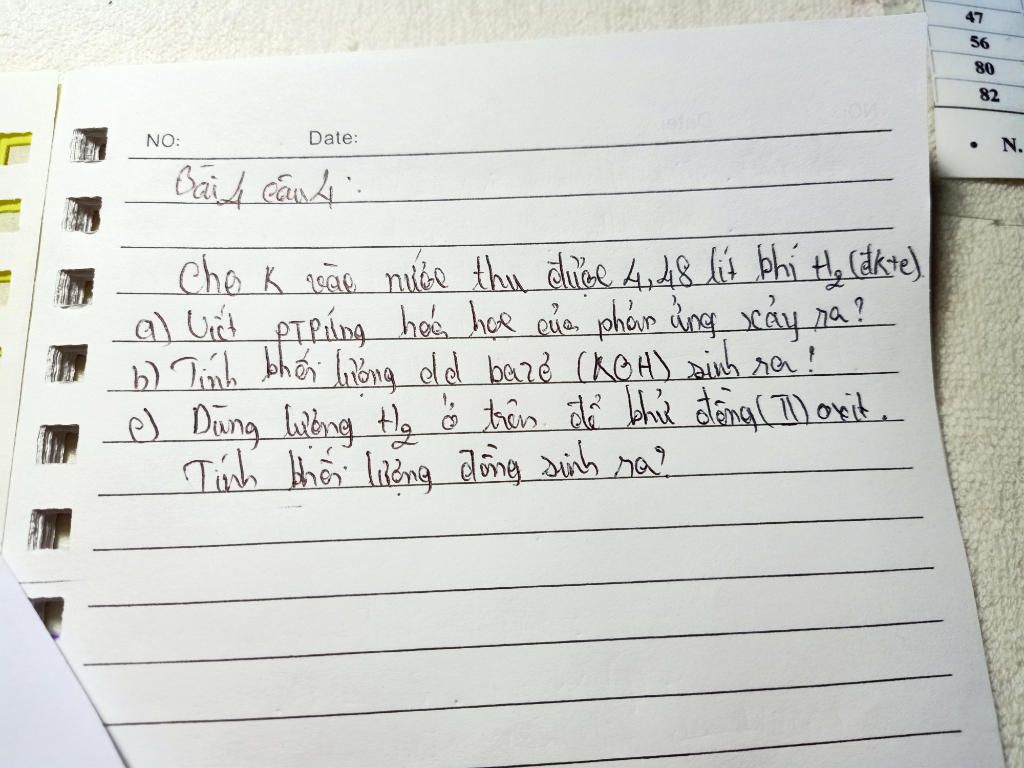 47
56
80
82
• N.
NO: Date:
Bài 4 câu 4:
Cho K vào nước thu được 4,48 lít khí H2 (đktc)
a) Viết PTPứng hoá học của phản ứng xảy ra?
b) Tính khối lượng của bazơ (KOH) sinh ra!
c) Dùng lượng H2 ở trên để khử đồng (II) oxit.
Tính khối lượng đồng sinh ra?